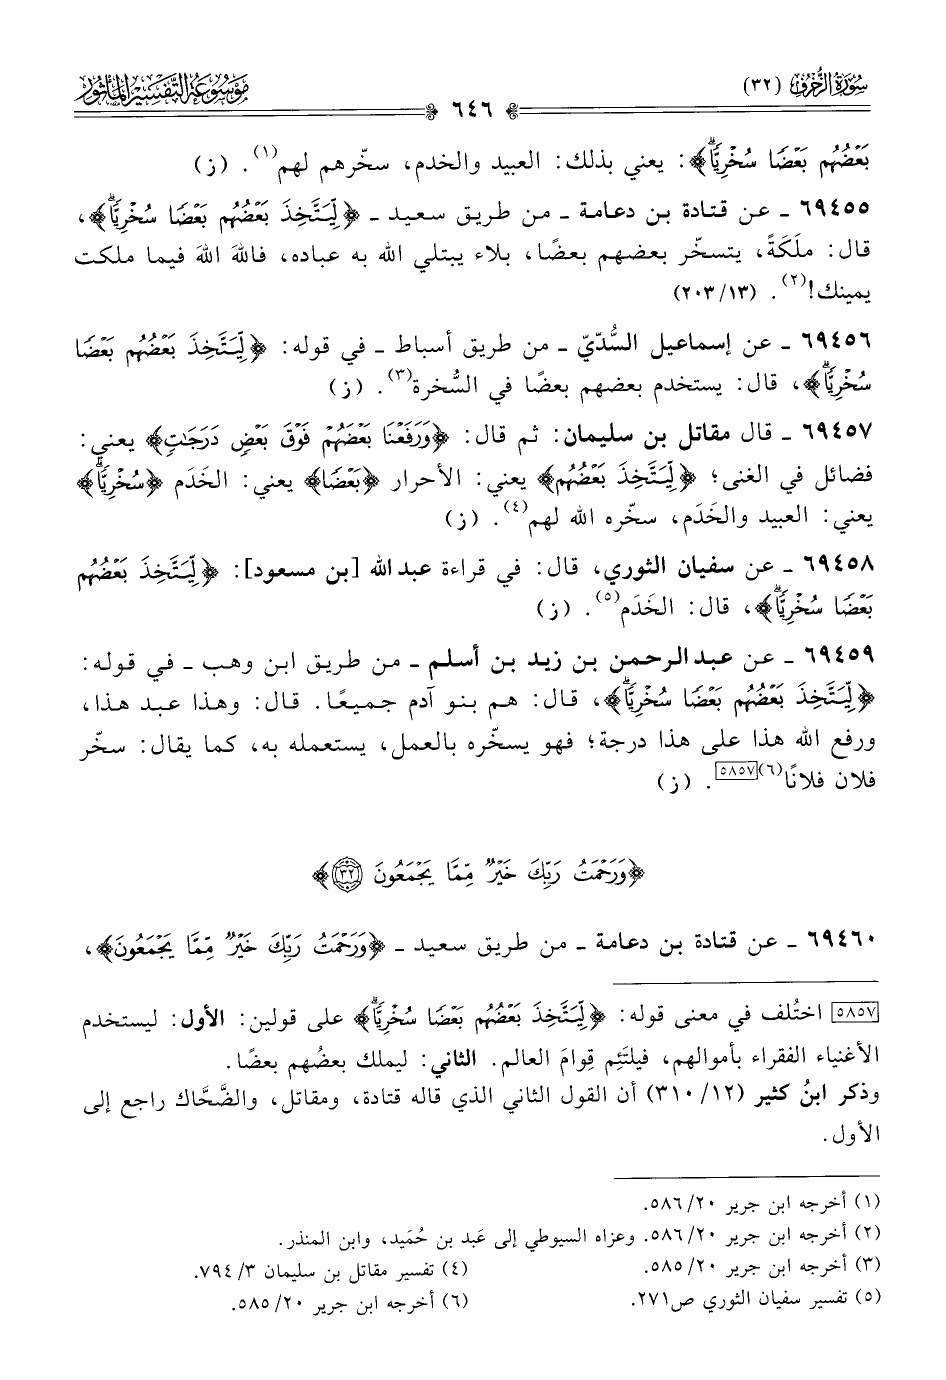 سُورَةُ الزُّخْرُفِ (٣٢)
٦٤٦
مَوْسُوعَةُ التَّفْسِيرِ المَأْثُورِ
بَعْضُهُم بَعْضًا سُخْرِيًّاۗ﴾: يعني بذلك: العبيد والخدم، سخّرهم لهم(١). (ز)
٦٩٤٥٥ ـ عن قتادة بن دعامة ـ من طريق سعيد ـ ﴿لِّيَتَّخِذَ بَعْضُهُم بَعْضًا سُخْرِيًّاۗ﴾،
قال: ملَكَةً، يتسخّر بعضهم بعضًا، بلاء يبتلي الله به عباده، فاللهَ اللهَ فيما ملكت
يمينك!(٢). (٢٠٣/١٣)
٦٩٤٥٦ ـ عن إسماعيل السُّدّيّ ـ من طريق أسباط ـ في قوله: ﴿لِّيَتَّخِذَ بَعْضُهُم بَعْضًا
سُخْرِيًّاۗ﴾، قال: يستخدم بعضهم بعضًا في السُّخرة(٣). (ز)
٦٩٤٥٧ ـ قال مقاتل بن سليمان: ثم قال: ﴿وَرَفَعْنَا بَعْضَهُمْ فَوْقَ بَعْضٍ دَرَجَٰتٍ﴾ يعني:
فضائل في الغنى؛ ﴿لِّيَتَّخِذَ بَعْضُهُم﴾ يعني: الأحرار ﴿بَعْضًا﴾ يعني: الخَدَم ﴿سُخْرِيًّاۗ﴾
يعني: العبيد والخَدَم، سخّره الله لهم(٤). (ز)
٦٩٤٥٨ ـ عن سفيان الثوري، قال: في قراءة عبد الله [بن مسعود]: ﴿لِّيَتَّخِذَ بَعْضُهُم
بَعْضًا سُخْرِيًّاۗ﴾، قال: الخَدَم(٥). (ز)
٦٩٤٥٩ ـ عن عبد الرحمن بن زيد بن أسلم ـ من طريق ابن وهب ـ في قوله:
﴿لِّيَتَّخِذَ بَعْضُهُم بَعْضًا سُخْرِيًّاۗ﴾، قال: هم بنو آدم جميعًا. قال: وهذا عبد هذا،
ورفع الله هذا على هذا درجة؛ فهو يسخّره بالعمل، يستعمله به، كما يقال: سخّر
فلان فلانًا(٦)[٥٨٥٧]. (ز)
﴿وَرَحْمَتُ رَبِّكَ خَيْرٌ مِّمَّا يَجْمَعُونَ ٣٢﴾
٦٩٤٦٠ ـ عن قتادة بن دعامة ـ من طريق سعيد ـ ﴿وَرَحْمَتُ رَبِّكَ خَيْرٌ مِّمَّا يَجْمَعُونَ﴾،
[٥٨٥٧] اختُلف في معنى قوله: ﴿لِّيَتَّخِذَ بَعْضُهُم بَعْضًا سُخْرِيًّاۗ﴾ على قولين: الأول: ليستخدم
الأغنياء الفقراء بأموالهم، فيلتَئِم قِوامَ العالم. الثاني: ليملك بعضُهم بعضًا.
وذكر ابنُ كثير (٣١٠/١٢) أن القول الثاني الذي قاله قتادة، ومقاتل، والضَّحَّاك راجع إلى
الأول.
(١) أخرجه ابن جرير ٥٨٦/٢٠.
(٢) أخرجه ابن جرير ٥٨٦/٢٠. وعزاه السيوطي إلى عَبد بن حُمَيد، وابن المنذر.
(٣) أخرجه ابن جرير ٥٨٥/٢٠.
(٤) تفسير مقاتل بن سليمان ٧٩٤/٣.
(٥) تفسير سفيان الثوري ص٢٧١.
(٦) أخرجه ابن جرير ٥٨٥/٢٠.